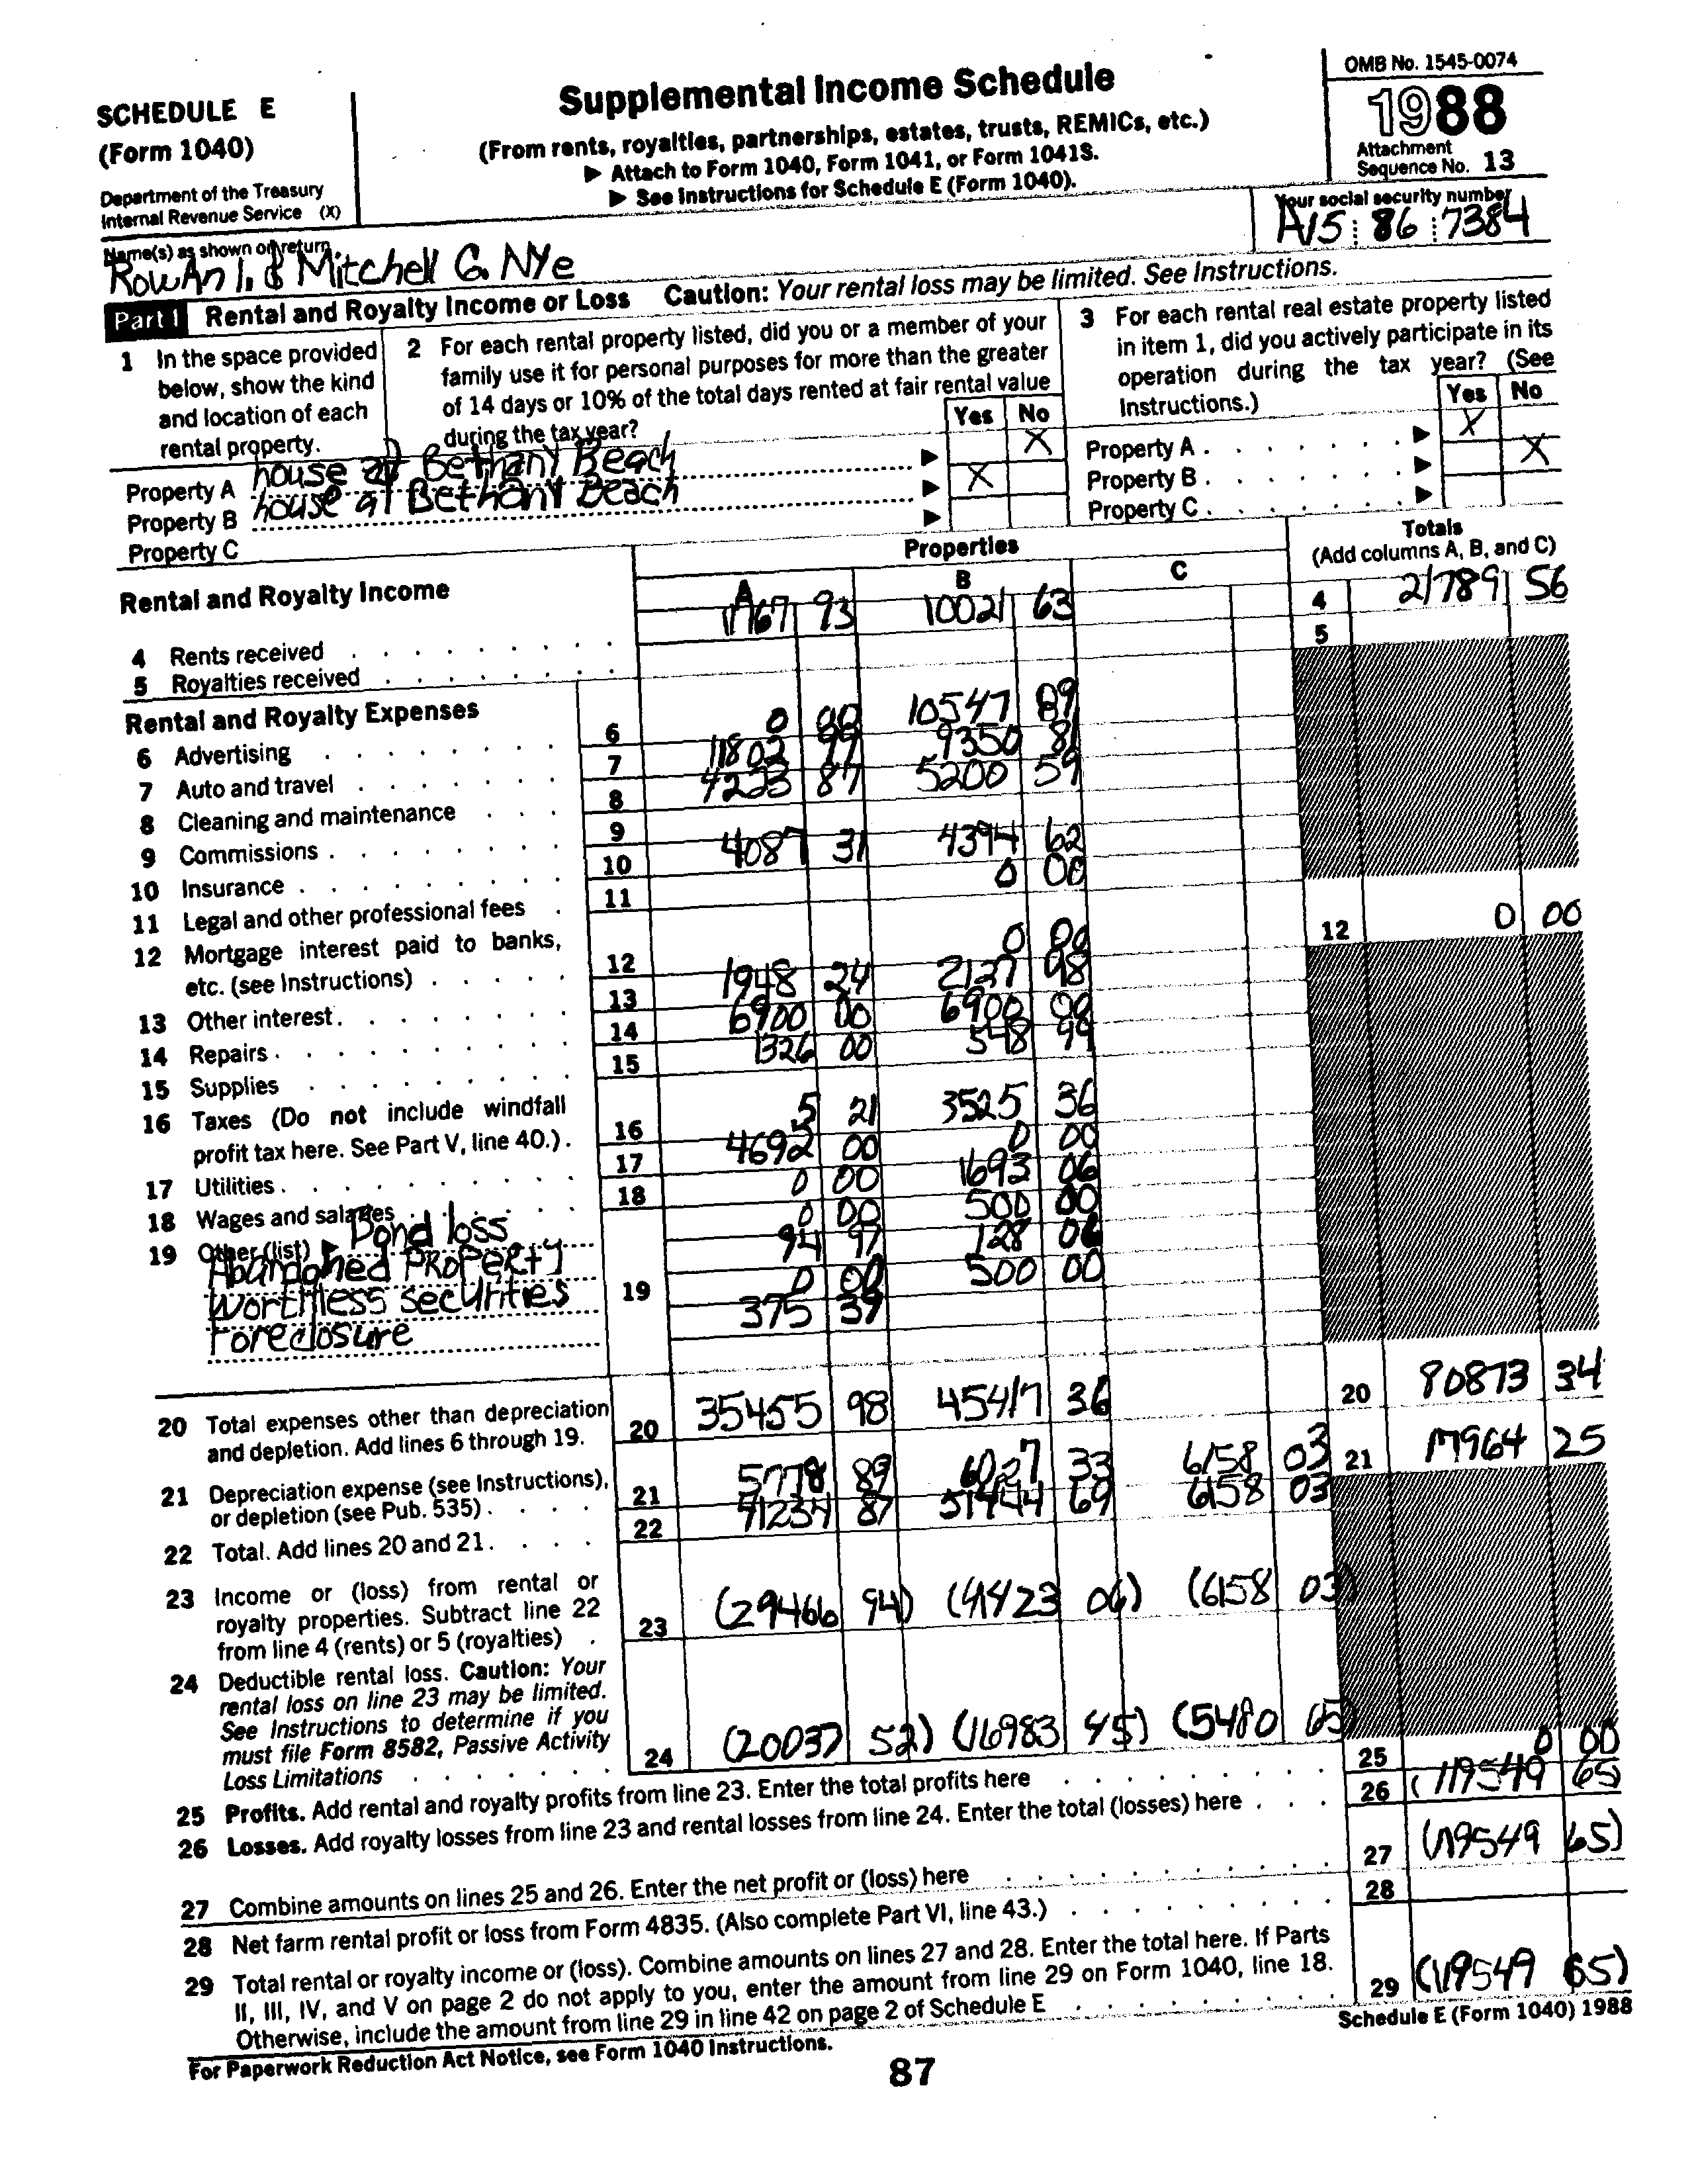 SCHEDULE E
(Form 1040)
Department of the Treasury
Internal Revenue Service (X)
Supplemental Income Schedule
(From rents, royalties, partnerships, estates, trusts, REMICs, etc.)
▶ Attach to Form 1040, Form 1041, or Form 1041S.
▶ See Instructions for Schedule E (Form 1040).
OMB No. 1545-0074
1988
Attachment
Sequence No. 13
Name(s) as shown on return
RowAn I. & Mitchell G. Nye
Your social security number
A15 86 7384
Part I Rental and Royalty Income or Loss Caution: Your rental loss may be limited. See Instructions.
1 In the space provided
below, show the kind
and location of each
rental property.
2 For each rental property listed, did you or a member of your
family use it for personal purposes for more than the greater
of 14 days or 10% of the total days rented at fair rental value
during the tax year?
Yes No
3 For each rental real estate property listed
in item 1, did you actively participate in its
operation during the tax year? (See
Instructions.)
Yes No
Property A house at Bethany Beach ▶ X Property A ▶ X
Property B house at Bethany Beach ▶ X Property B ▶ X
Property C ▶ Property C ▶
Properties
Totals
(Add columns A, B, and C)
Rental and Royalty Income
A B C
4 Rents received 67 93 10021 63 4 21789 56
5 Royalties received 5
Rental and Royalty Expenses
6 Advertising 6 0 00 10547 89
7 Auto and travel 7 11802 99 9350 81
8 Cleaning and maintenance 8 4223 87 5200 59
9 Commissions 9
10 Insurance 10 4087 31 4394 62
11 Legal and other professional fees 11 0 00
12 Mortgage interest paid to banks,
etc. (see Instructions) 12 0 00 12 0 00
13 Other interest 13 1948 24 2127 98
14 Repairs 14 6900 00 6900 00
15 Supplies 15 1326 00 548 99
16 Taxes (Do not include windfall
profit tax here. See Part V, line 40.) 16 5 21 3525 36
17 Utilities 17 4692 00 0 00
18 Wages and salaries 18 0 00 1693 06
19 Other (list) ▶ Bond loss 0 00 500 00
Abandoned Property 94 97 128 06
Worthless securities 19 0 00 500 00
Foreclosure 375 39
20 Total expenses other than depreciation
and depletion. Add lines 6 through 19. 20 35455 98 45417 36 20 80873 34
21 Depreciation expense (see Instructions),
or depletion (see Pub. 535) 21 5778 89 6027 33 6158 03 21 17964 25
22 Total. Add lines 20 and 21. 22 41234 87 51444 69 6158 03
23 Income or (loss) from rental or
royalty properties. Subtract line 22
from line 4 (rents) or 5 (royalties) 23 (29466 94) (41423 06) (6158 03)
24 Deductible rental loss. Caution: Your
rental loss on line 23 may be limited.
See Instructions to determine if you
must file Form 8582, Passive Activity
Loss Limitations 24 (20037 52) (16983 45) (5480 65)
25 Profits. Add rental and royalty profits from line 23. Enter the total profits here 25 0 00
26 Losses. Add royalty losses from line 23 and rental losses from line 24. Enter the total (losses) here 26 (119549 65)
27 Combine amounts on lines 25 and 26. Enter the net profit or (loss) here 27 (119549 65)
28 Net farm rental profit or loss from Form 4835. (Also complete Part VI, line 43.) 28
29 Total rental or royalty income or (loss). Combine amounts on lines 27 and 28. Enter the total here. If Parts
II, III, IV, and V on page 2 do not apply to you, enter the amount from line 29 on Form 1040, line 18.
Otherwise, include the amount from line 29 in line 42 on page 2 of Schedule E 29 (119549 65)
For Paperwork Reduction Act Notice, see Form 1040 Instructions.
Schedule E (Form 1040) 1988
87